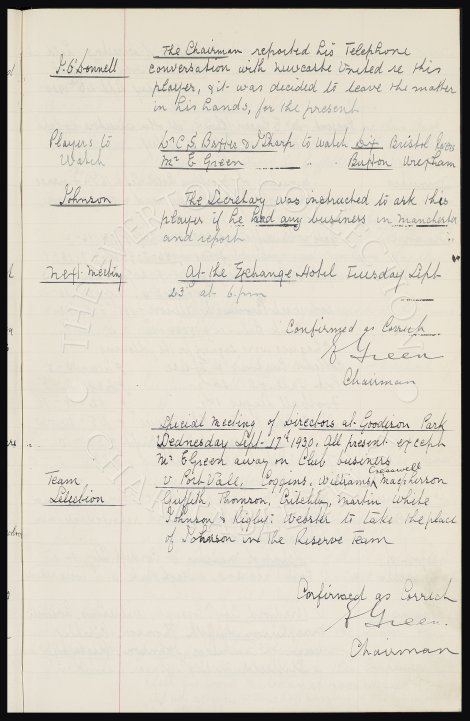 J. O'Donnell
The Chairman reported his Telephone
conversation with Newcastle United re this
player, & it was decided to leave the matter
in his hands, for the present
Players to
Watch
W. C. S. Baxter & J Sharp to watch Bristol Rovers
Mr E Green " " Buxton Wrexham
Johnson
The Secretary was instructed to ask this
player if he had any business in Manchester
and report
Next Meeting
At the Exchange Hotel Tuesday Sept
23 at 6 pm
Confirmed as Correct
E Green
Chairman
Special Meeting of Directors at Goodison Park
Wednesday Sept 17th 1930. All present except
Mr E Green away on Club business
Team
Selection
v Port Vale, Coggins, Williams, Cresswell MacPherson
Griffith, Thomson, Critchley, Martin White
Johnson & Rigby: Webster to take the place
of Johnson in The Reserve Team
Confirmed as Correct
E Green.
Chairman